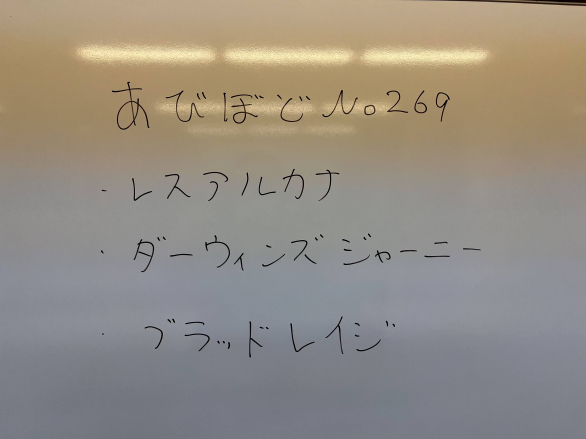 あびぼど No 269
・レスアルカナ
・ダーウィンズジャーニー
・ブラッドレイジ